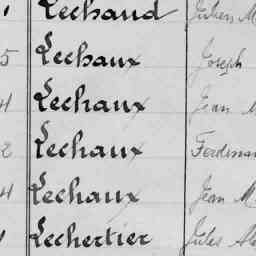 Lechaud Julien M
5 Lechaux Joseph
4 Lechaux Jean M
2 Lechaux Ferdinan
4 Lechaux Jean M
Lechertier Jules Al